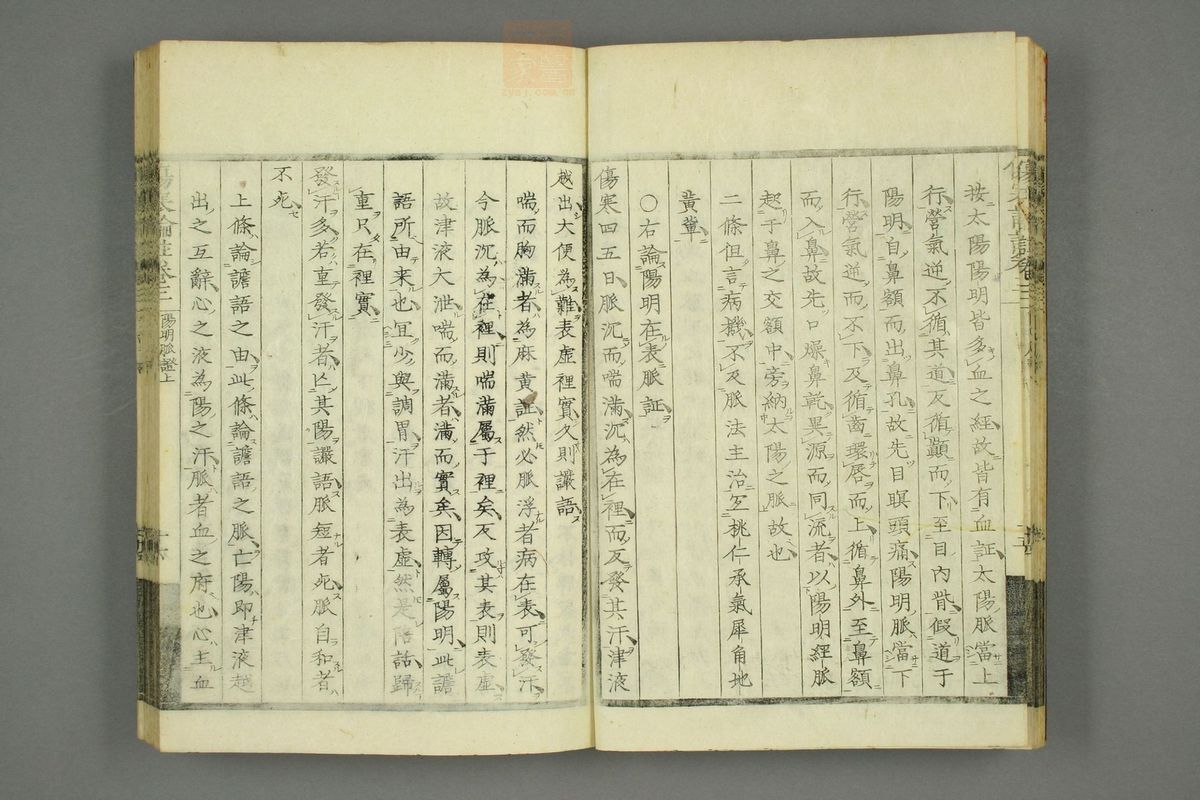 按太陽陽明皆多血之經故皆有血証太陽脈當上
行營氣逆不循其道反循巔而下至目內眥假道于
陽明自鼻額而出鼻孔故先目瞑頭痛陽明脈當下
行營氣逆而不下反循齒環唇而上循鼻外至鼻額
而入鼻故先口燥鼻乾異源而同流者以陽明經脈
起于鼻之交額中旁納太陽之脈故也
二條但言病機不及脈法主治宜桃仁承氣犀角地
黄軰
〇右論陽明在表脈証
傷寒四五日脈沉而喘滿沉為在裡而反發其汗津液
越出大便為難表虛裡實久則譫語
喘而胸滿者為麻黄証然必脈浮者病在表可發汗
今脈沉為在裡則喘滿屬于裡矣反攻其表則表虛
故津液大泄喘而滿者滿而實矣因轉屬陽明此譫
語所由来也宜少與調胃汗出為表虛然是陪話歸
重只在裡實
發汗多若重發汗者亡其陽譫語脈短者死脈自和者
不死
上條論譫語之由此條論譫語之脈亡陽即津液越
出之互辭心之液為陽之汗脈者血之府也心主血
傷寒論註卷三 陽明脈證上